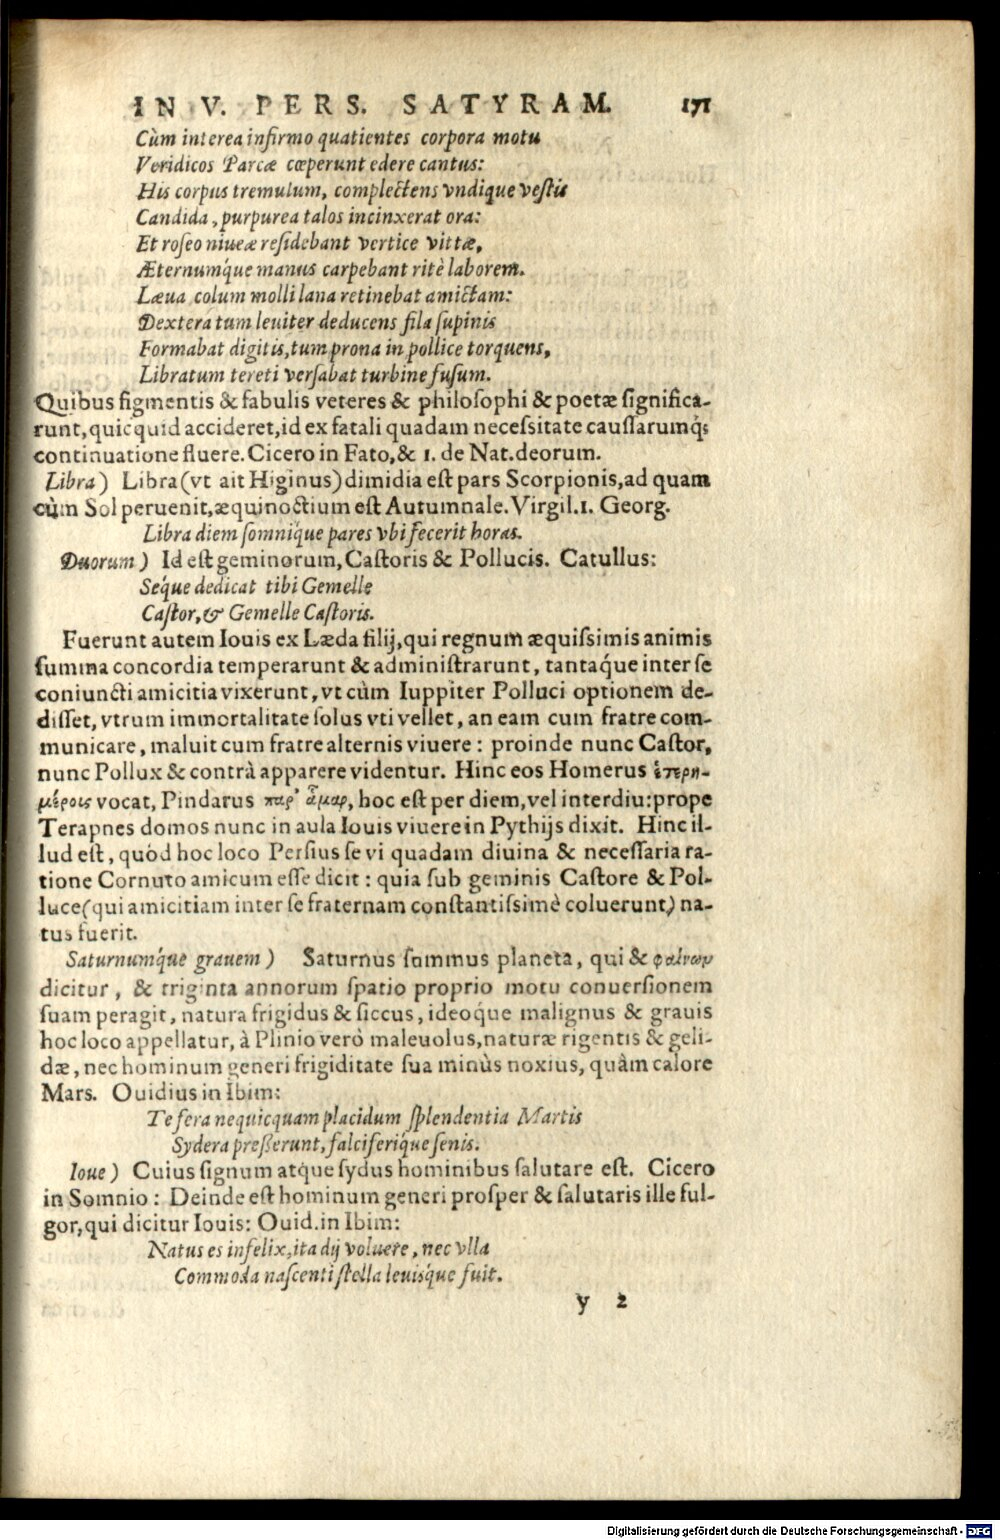 IN V. PERS. SATYRAM. 171
Cùm interea infirmo quatientes corpora motu
Veridicos Parcæ cœperunt edere cantus:
His corpus tremulum, complectens vndique vestis
Candida, purpurea talos incinxerat ora:
Et roseo niueæ residebant vertice vittæ,
Æternumq́ue manus carpebant ritè laborem.
Læua colum molli lana retinebat amictam:
Dextera tum leuiter deducens fila supinis
Formabat digitis, tum prona in pollice torquens,
Libratum tereti versabat turbine fusum.
Quibus figmentis & fabulis veteres & philosophi & poetæ significa-
runt, quicquid accideret, id ex fatali quadam necessitate caussarumq́;
continuatione fluere. Cicero in Fato, & 1. de Nat. deorum.
Libra) Libra (vt ait Higinus) dimidia est pars Scorpionis, ad quam
cùm Sol peruenit, æquinoctium est Autumnale. Virgil. 1. Georg.
Libra diem somniq́ue pares vbi fecerit horas.
Duorum) Id est geminorum, Castoris & Pollucis. Catullus:
Seq́ue dedicat tibi Gemelle
Castor, & Gemelle Castoris.
Fuerunt autem Iouis ex Læda filij, qui regnum æquissimis animis
summa concordia temperarunt & administrarunt, tantaq́ue inter se
coniuncti amicitia vixerunt, vt cùm Iuppiter Polluci optionem de-
disset, vtrum immortalitate solus vti vellet, an eam cum fratre com-
municare, maluit cum fratre alternis viuere: proinde nunc Castor,
nunc Pollux & contrà apparere videntur. Hinc eos Homerus ἑτερη-
μέροις vocat, Pindarus παρ' ἆμαρ, hoc est per diem, vel interdiu: prope
Terapnes domos nunc in aula Iouis viuere in Pythijs dixit. Hinc il-
lud est, quòd hoc loco Persius se vi quadam diuina & necessaria ra-
tione Cornuto amicum esse dicit: quia sub geminis Castore & Pol-
luce (qui amicitiam inter se fraternam constantissimè coluerunt) na-
tus fuerit.
Saturnumq́ue grauem) Saturnus summus planeta, qui & φαίνων
dicitur, & triginta annorum spatio proprio motu conuersionem
suam peragit, natura frigidus & siccus, ideoq́ue malignus & grauis
hoc loco appellatur, à Plinio verò maleuolus, naturæ rigentis & geli-
dæ, nec hominum generi frigiditate sua minùs noxius, quàm calore
Mars. Ouidius in Ibim:
Te fera nequicquam placidum splendentia Martis
Sydera presserunt, falciferiq́ue senis.
Ioue) Cuius signum atque sydus hominibus salutare est. Cicero
in Somnio: Deinde est hominum generi prosper & salutaris ille ful-
gor, qui dicitur Iouis: Ouid. in Ibim:
Natus es infelix, ita dij voluere, nec vlla
Commoda nascenti stella leuisq́ue fuit.
y 2
Digitalisierung gefördert durch die Deutsche Forschungsgemeinschaft - DFG